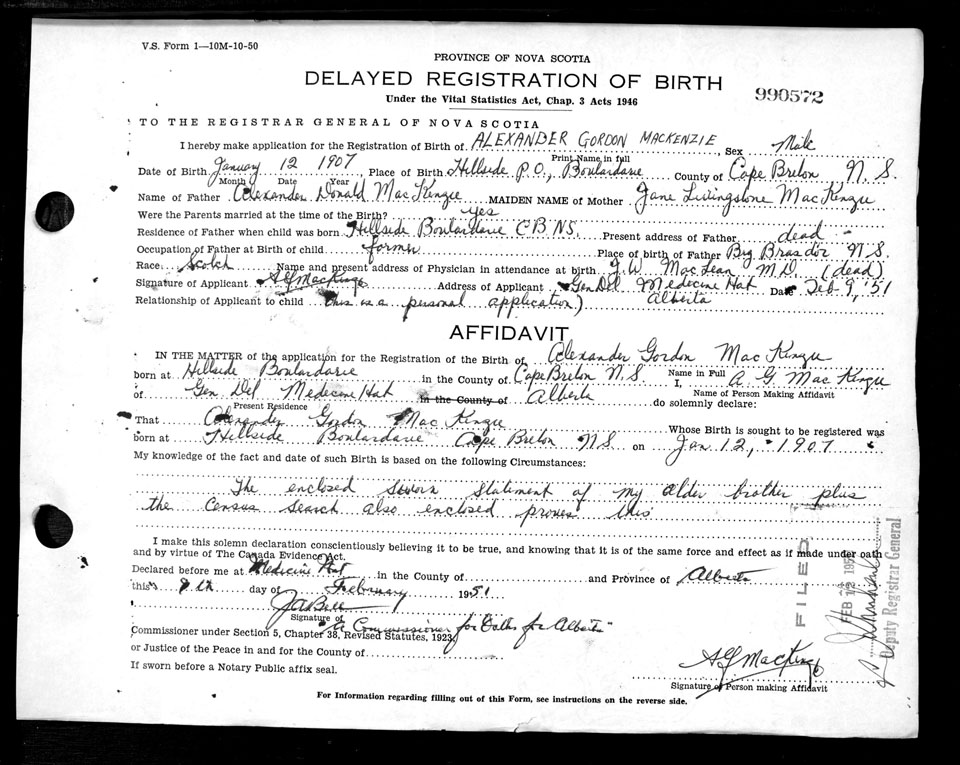 V.S. Form 1—10M-10-50
PROVINCE OF NOVA SCOTIA
DELAYED REGISTRATION OF BIRTH
990572
Under the Vital Statistics Act, Chap. 3 Acts 1946
TO THE REGISTRAR GENERAL OF NOVA SCOTIA
I hereby make application for the Registration of Birth of ALEXANDER GORDON MACKENZIE, Sex Male
Print Name in full
Date of Birth January 12 1907, Place of Birth Hillside P.O., Boulardarie County of Cape Breton N.S.
Month Date Year
Name of Father Alexander Donald MacKenzie MAIDEN NAME of Mother Jane Livingstone MacKenzie
Were the Parents married at the time of the Birth? yes
Residence of Father when child was born Hillside Boulardarie C B N S. Present address of Father dead
Occupation of Father at Birth of child farmer Place of birth of Father Big Bras d'or N.S.
Race Scotch Name and present address of Physician in attendance at birth J. W. MacLean, M.D. (dead)
Signature of Applicant A G MacKenzie Address of Applicant Gen Del Medicine Hat Date Feb 9, '51
Relationship of Applicant to child this is a personal application) Alberta
AFFIDAVIT
IN THE MATTER of the application for the Registration of the Birth of Alexander Gordon MacKenzie
born at Hillside Boulardarie in the County of Cape Breton N.S. I, A. G. MacKenzie
Name in Full
of Gen. Del Medicine Hat in the County of Alberta do solemnly declare:
Present Residence Name of Person Making Affidavit
That Alexander Gordon MacKenzie Whose Birth is sought to be registered was
born at Hillside Boulardarie Cape Breton N S on Jan 12, 1907
My knowledge of the fact and date of such Birth is based on the following Circumstances:
The enclosed sworn statement of my older brother plus
the Census search also enclosed proves this
I make this solemn declaration conscientiously believing it to be true, and knowing that it is of the same force and effect as if made under oath
and by virtue of The Canada Evidence Act.
Declared before me at Medicine Hat in the County of and Province of Alberta
this 9 th day of February 1951
J A Bell
Signature of
"A Commissioner for Oaths for Alberta"
Commissioner under Section 5, Chapter 38, Revised Statutes, 1923,
or Justice of the Peace in and for the County of
If sworn before a Notary Public affix seal.
A G MacKenzie
Signature of Person making Affidavit
For Information regarding filling out of this Form, see instructions on the reverse side.
FILED
Deputy Registrar General